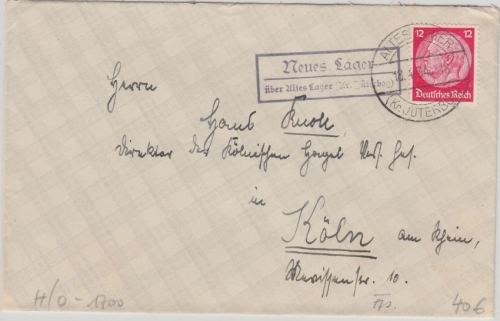 Neues Lager
über Altes Lager (Kr. Jüterbog)
ALTES LAGER
(Kr. JÜTERBOG)
12 12
Deutsches Reich
Herrn
Hans Knoll,
Direktor der Kölnischen Hagel Vers. Ges.
in
Köln am Rhein,
10.
H/O - 1700
40€